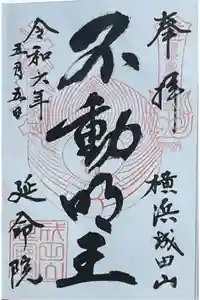 奉拝
横浜成田山
不動明王
令和六年
五月五日
延命院